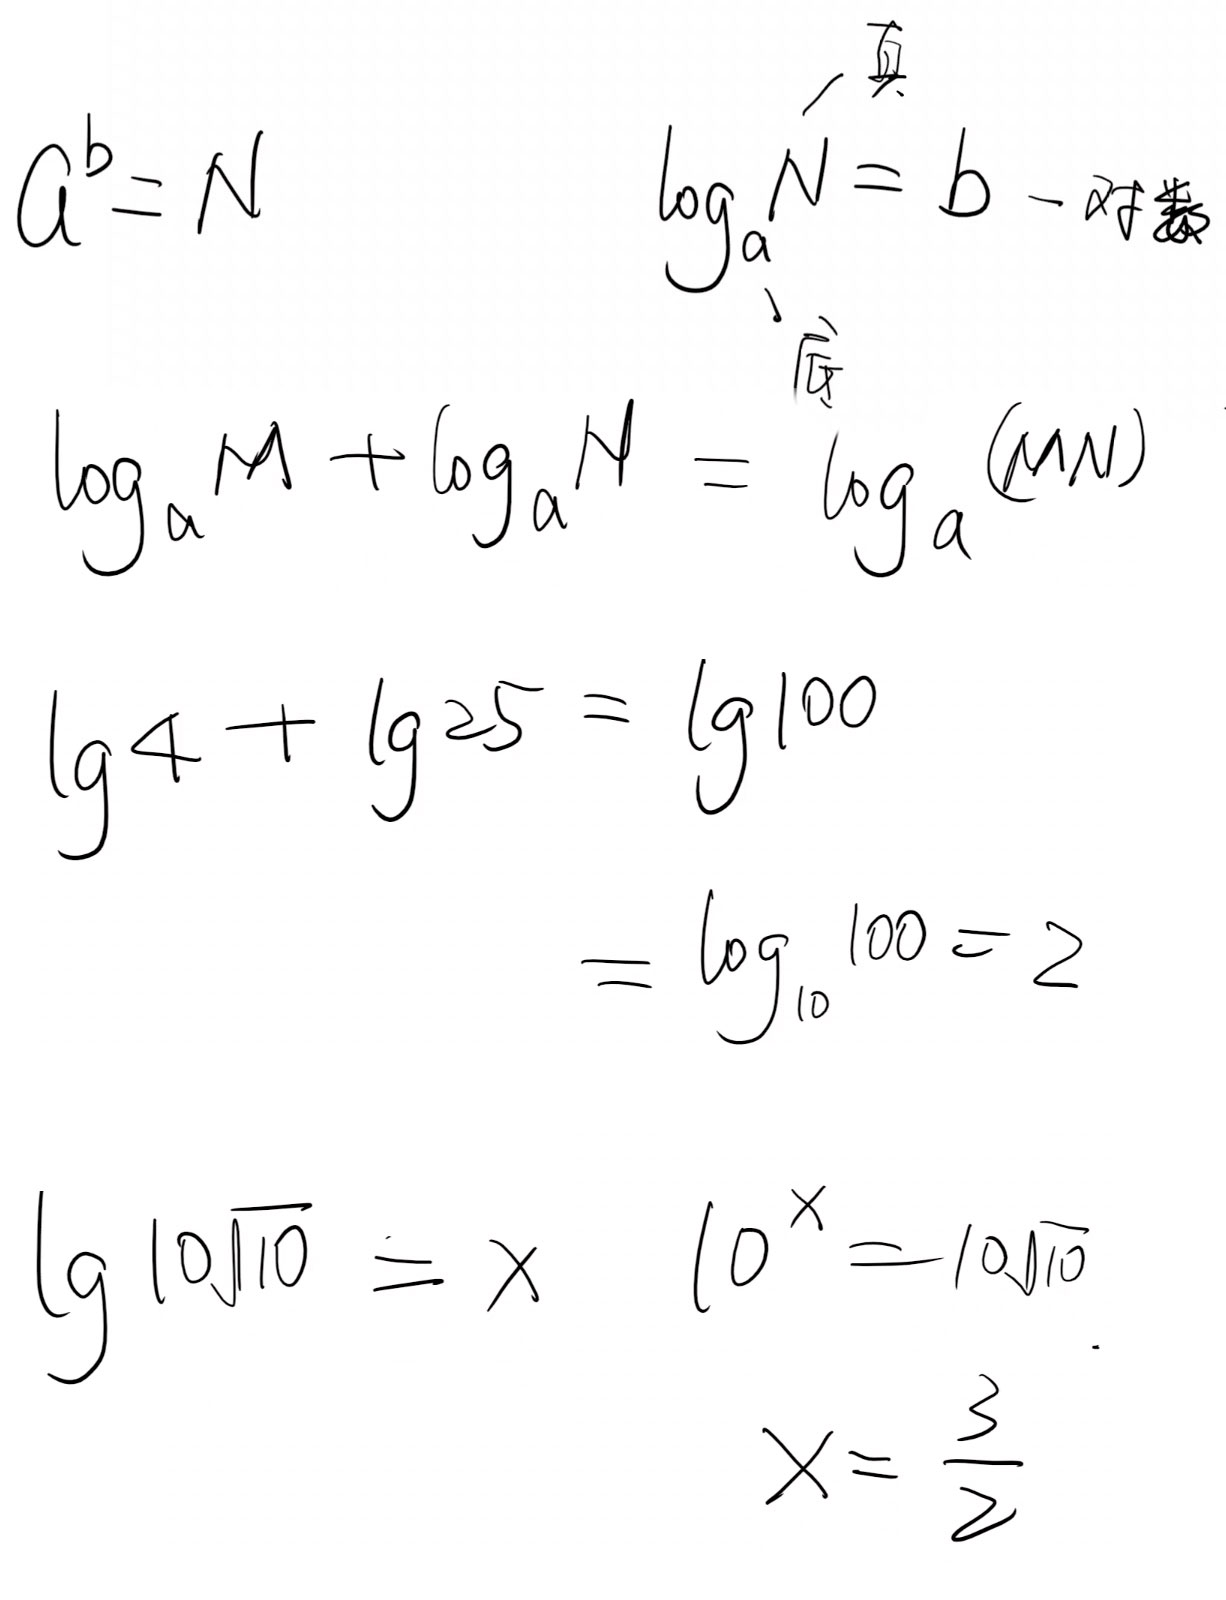 真
a^b = N log_a N = b - 对数
底
log_a M + log_a N = log_a (MN)
lg 4 + lg 25 = lg 100
= log_10 100 = 2
lg 10√10 = x 10^x = 10√10
x = 3/2